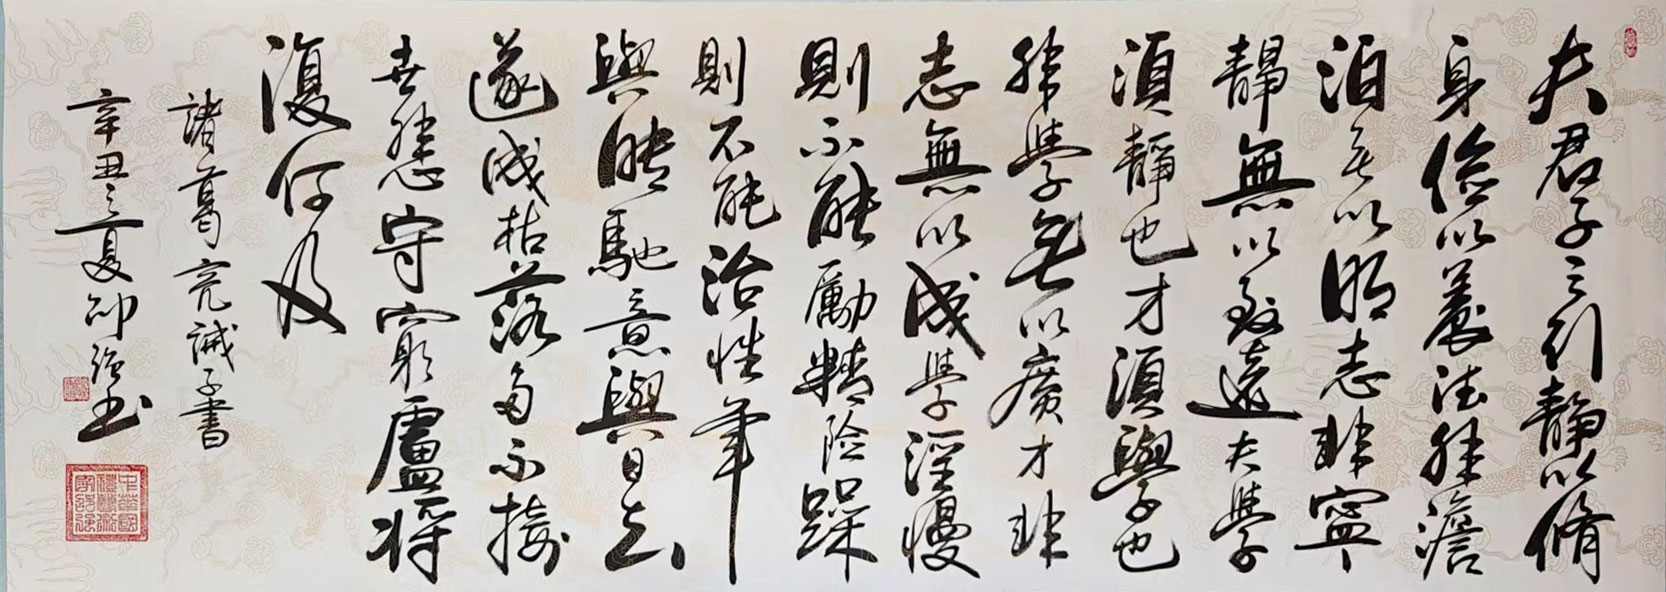 夫君子之行靜以脩
身儉以養德非澹
泊无以明志非寧
靜無以致遠夫學
須靜也才須學也
非學無以廣才非
志無以成學淫慢
則不能勵精險躁
則不能治性年
與時馳意與日去
遂成枯落多不接
世悲守窮廬將
復何及
諸葛亮誡子書
辛丑之夏邵強书
中華國禮藝術家邵強